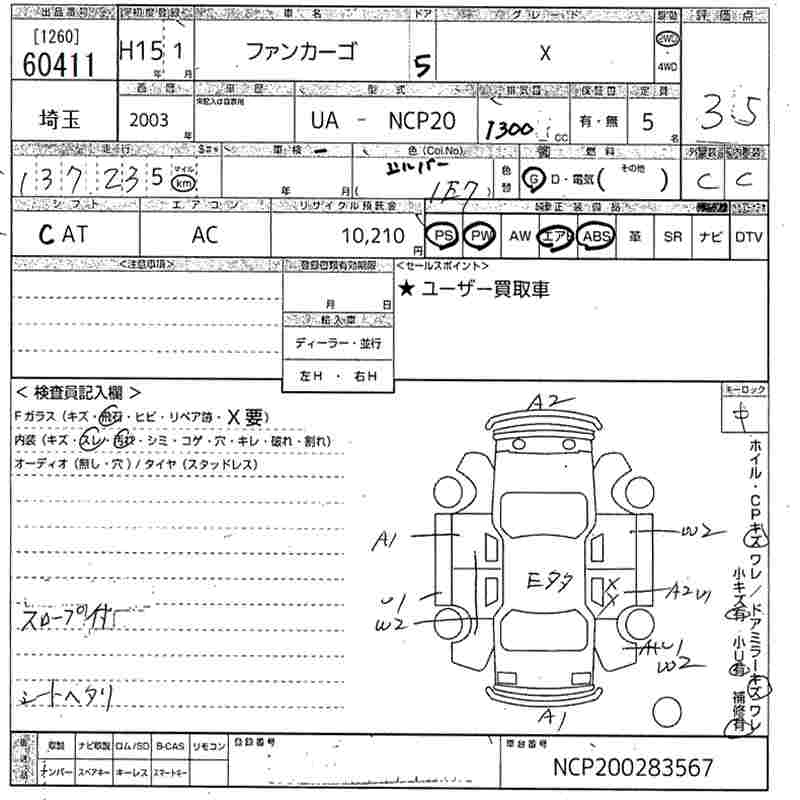 出品番号 初度登録 車名 ドア グレード 駆動 評価点
[1260]
60411 H15年 1月 ファンカーゴ 5 X 2WD 4WD 3.5
車歴 型式 排気量 定員
埼玉 2003年 UA - NCP20 1300 CC 有・無 5名
走行 車検 色 (Col.No) 燃料 外装 内装
137,235 マイル km 年 月 シルバー (1E7) 色替 G D・電気( その他 ) C C
シフト エアコン リサイクル預託金 純正装備品
C AT AC 10,210円 PS PW AW エアB ABS 革 SR ナビ DTV
<注意事項> 登録書類有効期限 <セールスポイント>
月 日 ★ ユーザー買取車
輸入車
ディーラー・並行
左H ・ 右H
< 検査員記入欄 > キーロック
Fガラス (キズ・飛石・ヒビ・リペア跡・X要)
内装 (キズ・スレ・汚れ・シミ・コゲ・穴・キレ・破れ・割れ)
オーディオ (無し・穴) / タイヤ (スタッドレス)
A2
A1 W2
Eタタ
U1 A2 U1
W2
スロープ付
U1
W2
シートヘタリ
A1
ホイル・CPキズ ワレ / ドアミラーキズ ワレ
小キズ有 小U有 補修有
取説 ナビ取説 ロム/SD B-CAS リモコン 登録番号 車台番号
ナンバー スペアキー キーレス スマートキー NCP200283567